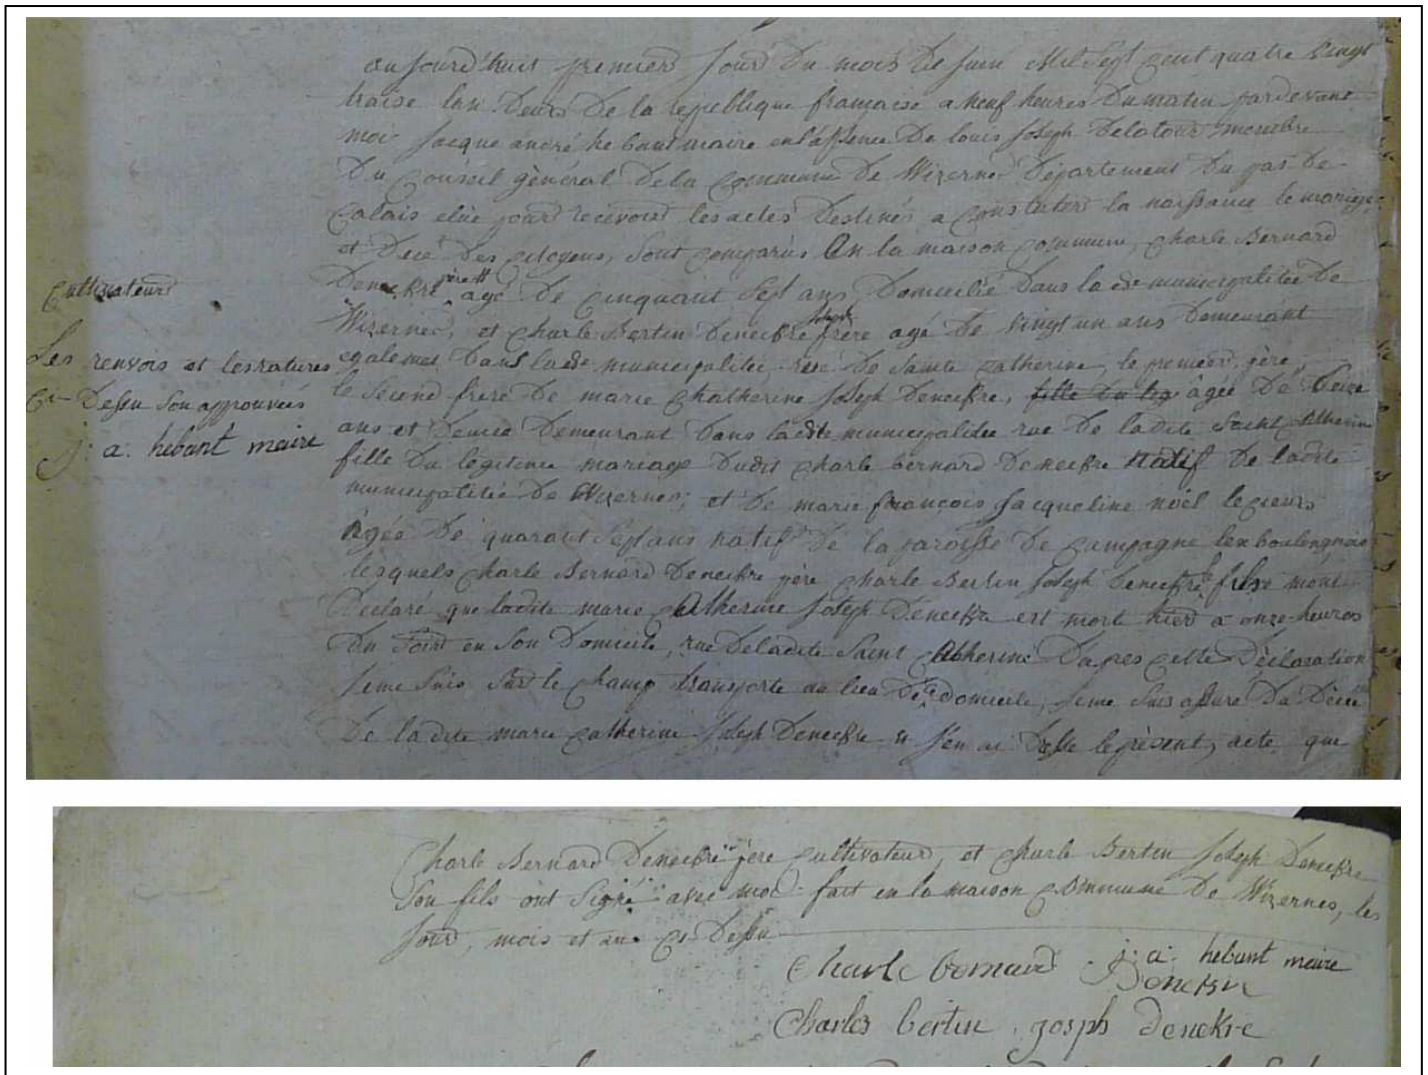 aujourd'huit premier jour du mois de juin Mil Sept cent quatre vingt
traise lan deux De la republique française a Neuf heures Du matin pardevant
moi jacque andré hebant maire en l'absence De louis joseph Delatour membre
Du Conseil gènéral De la Commune De Wizernes Département Du pas De
Calais elue pour recevoir les actes Destinés a Constater la naissance le mariage
et Décé Des citoyens, sont comparus En la maison Commune, Charle Bernard
Cultivateur
Denekre père agé De cinquant Sept ans Domicilié Dans la dte municipalitée De
Wizernes, et Charle Bertin joseph Denekre frère agé De vingt un ans Demeurant
Les renvois et les ratures
egalement Dans la dte municipalitée rue De Sainte Catherine, le premier père,
Ci Dessu Son approuvées
le Second frere De marie Chatherine joseph Denekre, fille du leg âgée De treize
j: a: hebant maire
ans et Demie Demeurant Dans la dte municipalitée rue De ladite Saint Catherine
fille Du legitime mariage Dudit Charle bernard Denekre Natif De ladite
municipalitée De Wizernes; et De marie françois jacqueline noël
Agée De quarant Sept ans natif De la paroisse De Campagne les boulengnois
lesquels Charle Bernard Denekre père Charle Bertin joseph Denekre fils mont
Déclaré que ladite marie Catherine joseph Denekre est mort hier a onze heures
Du Soir en Son Domicile, rue De ladite Saint Catherine Dapres cette Déclaration
jeme Suis Sur le Champ transporte au lieu De domicile, jeme Suis assuré Du Décé
De ladite marie Catherine joseph Denekre et j'en ai Dessé le présent, acte que
Charle Bernard Denekre père Cultivateur, et Charle Bertin joseph Denekre
Son fils ont Signé avec moi fait en la maison Commune De Wizernes, les
jour, mois et an Ci Dessu
Charle bernard Denekre j: a: hebant maire
Charles bertin josph denekre